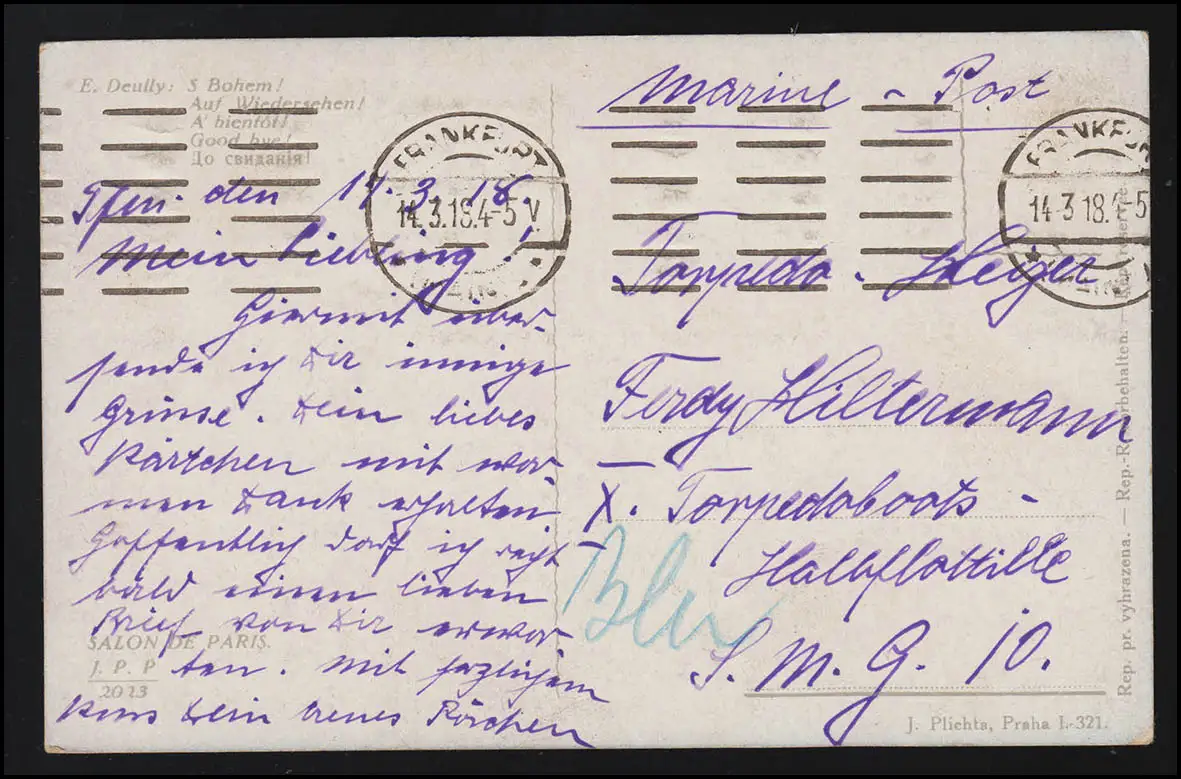 E. Deully: S Bohem!
Auf Wiedersehen!
A' bientôt!
Good bye!
До свиданія!
den 14.3.18.
Mein Liebling!
Hiermit über-
sende ich Dir innige
Grüsse. Dein liebes
Kärtchen mit war-
men Dank erhalten.
Hoffentlich darf ich recht
bald einen lieben
Brief von Dir erwar-
ten. Mit herzlichem
Kuss Dein treues
SALON DE PARIS.
J. P. P
2023
FRANKFURT
14.3.18.4-5 V
Marine - Post
FRANKFURT
14-3 18.4-5
Torpedo - Heizer
Ferdy Hiltermann
X. Torpedoboots -
Halbflottille
S. M. G. 10.
J. Plichta, Praha I.-321.
Rep. pr. vyhrazena. — Rep.-Recht vorbehalten. —